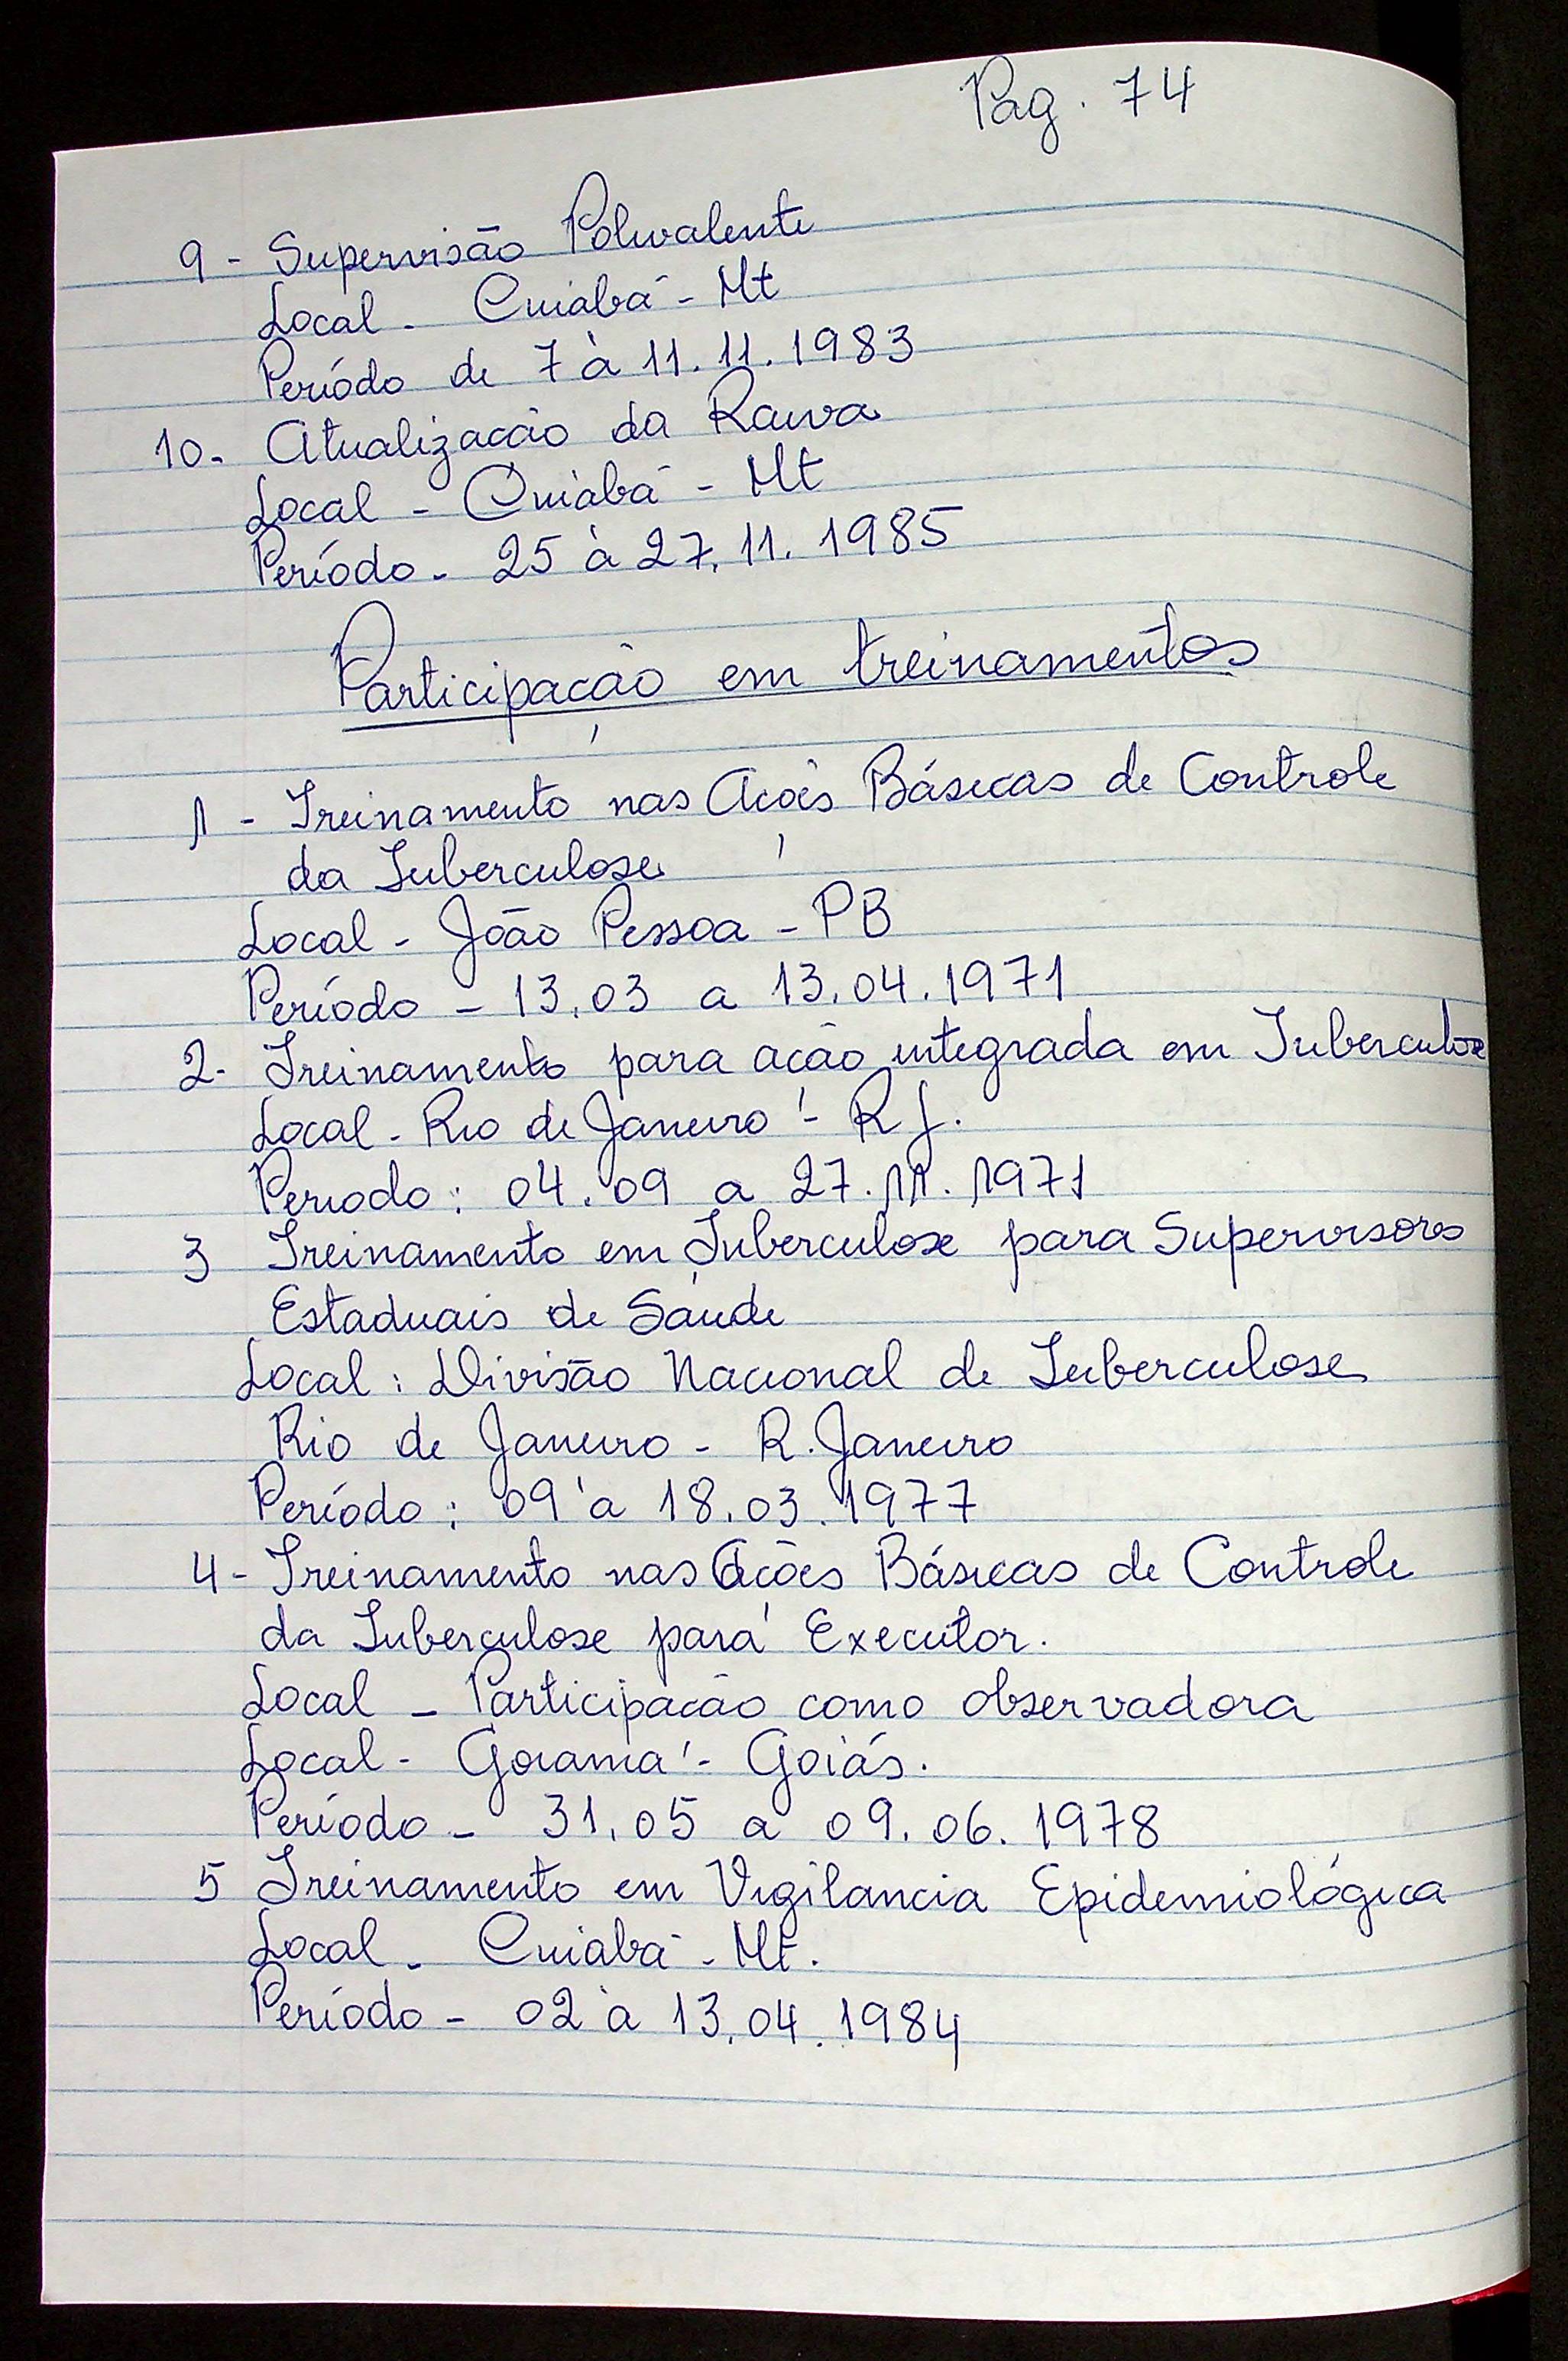 Pag. 74
9 - Supervisão Polivalente
Local - Cuiabá - Mt
Período de 7 à 11.11.1983
10. Atualização da Raiva
Local - Cuiabá - Mt
Período - 25 à 27.11.1985
Participação em treinamentos
1 - Treinamento nas Ações Básicas de Controle
da Tuberculose
Local - João Pessoa - PB
Período - 13.03 a 13.04.1971
2- Treinamento para ação integrada em Tuberculose
Local - Rio de Janeiro - RJ.
Periodo: 04.09 a 27.11.1971
3 Treinamento em Tuberculose para Supervisores
Estaduais de Saúde
Local: Divisão Nacional de Tuberculose
Rio de Janeiro - R. Janeiro
Período: 09 à 18.03.1977
4 - Treinamento nas Ações Básicas de Controle
da Tuberculose para Executor.
Local - Participação como observadora
Local - Goiania - Goiás.
Período - 31.05 a 09.06.1978
5 Treinamento em Vigilancia Epidemiológica
Local - Cuiabá - Mt.
Período - 02 à 13.04.1984